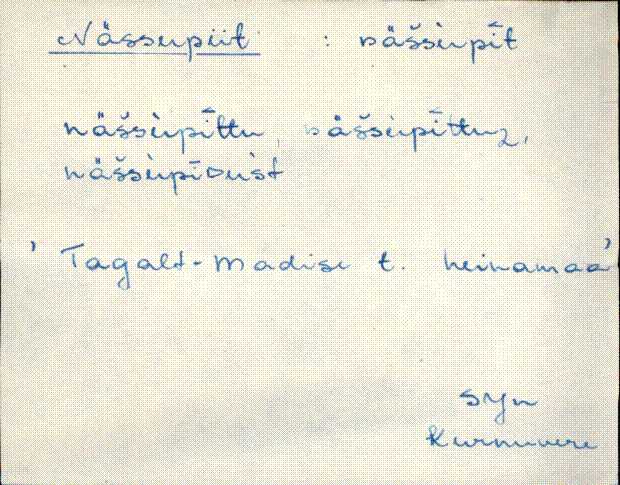 Nässupiit : näššùpīt
näššùpīttu, näššùpīttuz,
näššùpīDùst
' Tagalt-Madise t. heinamaa'
Syn
Kurnuvere